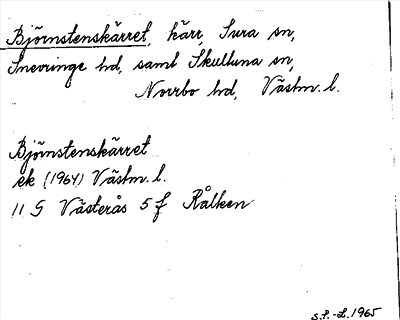 Björnstenskärret, kärr, Sura sn,
Snevringe hd, samt Skultuna sn,
Norrbo hd, Västm. l.
Björnstenskärret
ek (1964) Västm. l.
11 G Västerås 5 f Rålken
S.P.-L. 1965